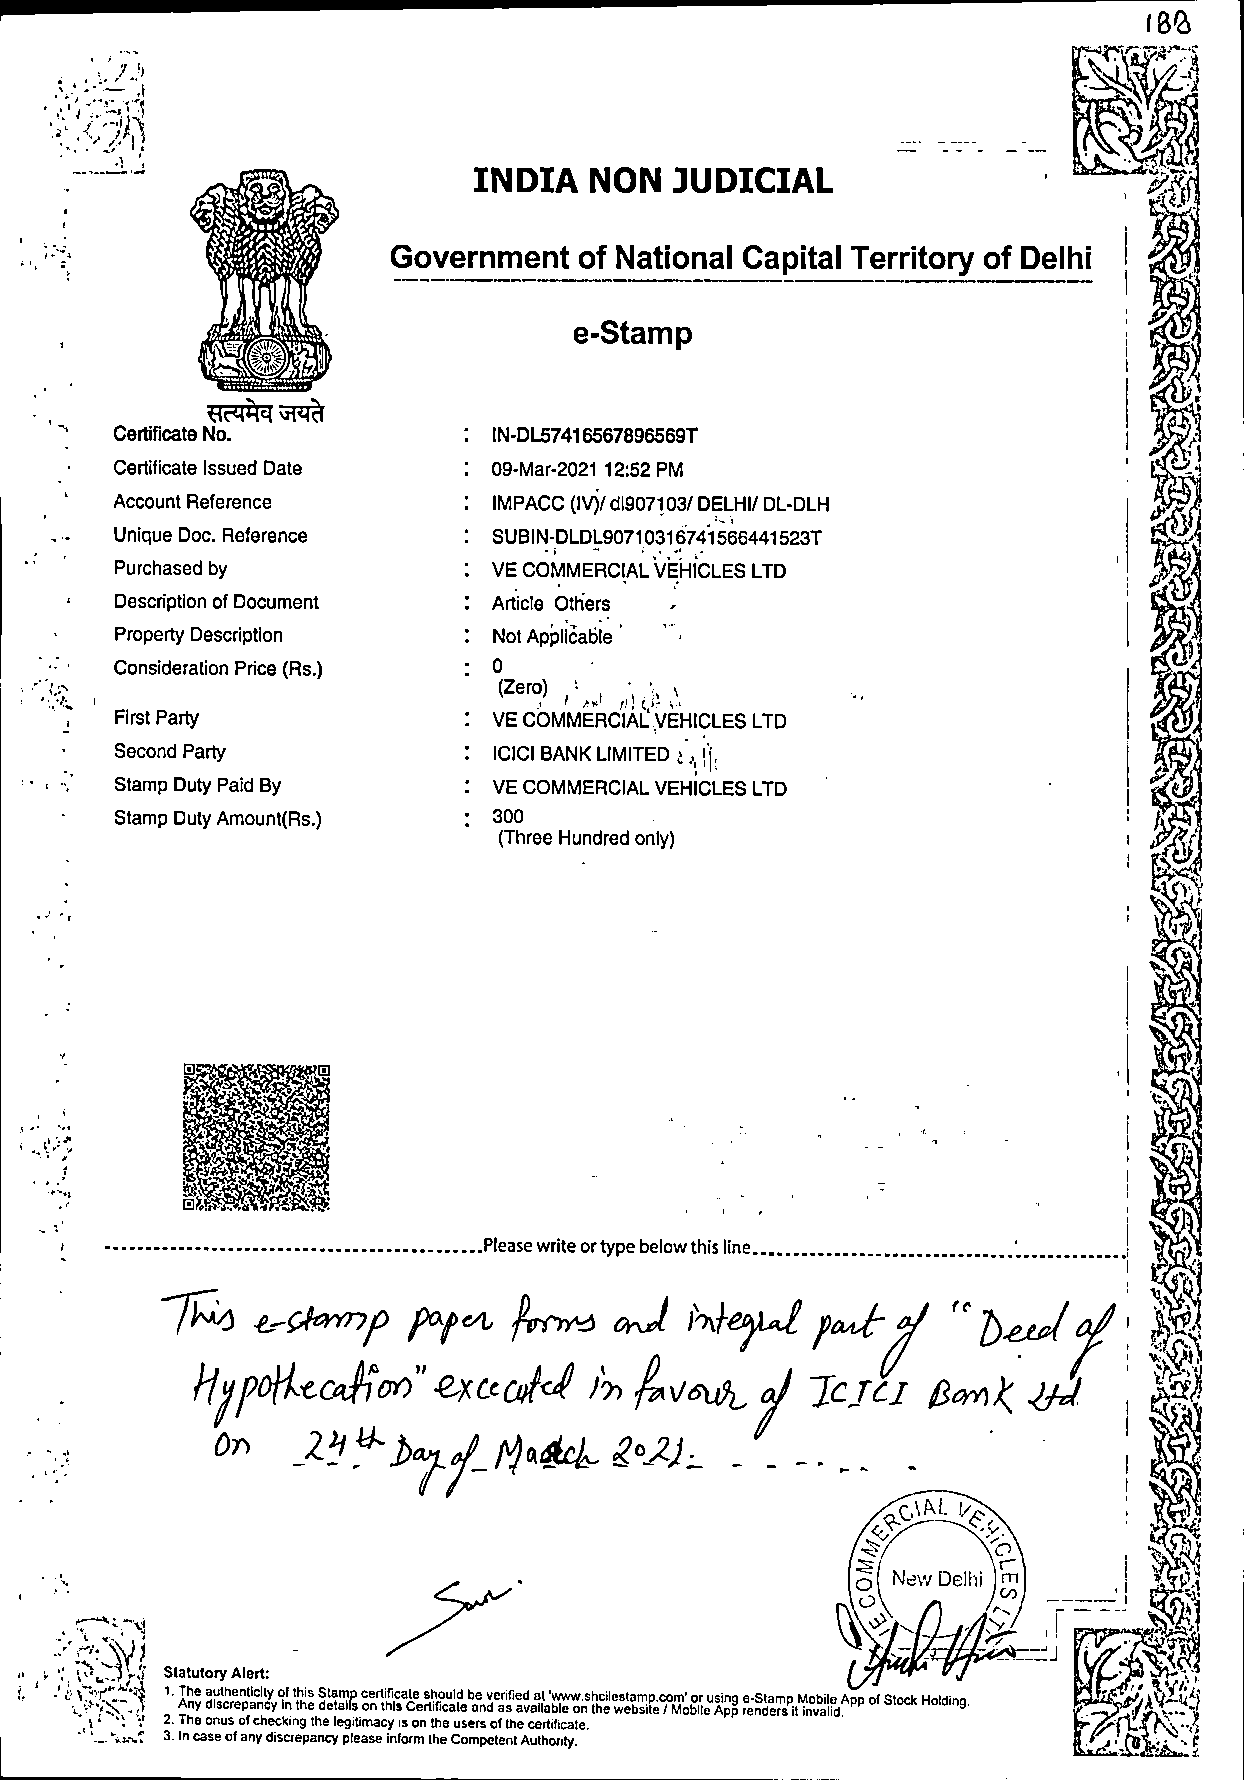 188
INDIA NON JUDICIAL
Government of National Capital Territory of Delhi
e-Stamp
सत्यमेव जयते
Certificate No. : IN-DL57416567896569T
Certificate Issued Date : 09-Mar-2021 12:52 PM
Account Reference : IMPACC (IV)/ dl907103/ DELHI/ DL-DLH
Unique Doc. Reference : SUBIN-DLDL90710316741566441523T
Purchased by : VE COMMERCIAL VEHICLES LTD
Description of Document : Article Others
Property Description : Not Applicable
Consideration Price (Rs.) : 0
(Zero)
First Party : VE COMMERCIAL VEHICLES LTD
Second Party : ICICI BANK LIMITED
Stamp Duty Paid By : VE COMMERCIAL VEHICLES LTD
Stamp Duty Amount(Rs.) : 300
(Three Hundred only)
Please write or type below this line
This e-stamp paper forms and integral part of "Deed of
Hypothecation" executed in favour of ICICI Bank Ltd
on 24th Day of March 2021.
VE COMMERCIAL VEHICLES LTD
New Delhi
Statutory Alert:
1. The authenticity of this Stamp certificate should be verified at 'www.shcilestamp.com' or using e-Stamp Mobile App of Stock Holding.
Any discrepancy in the details on this Certificate and as available on the website / Mobile App renders it invalid.
2. The onus of checking the legitimacy is on the users of the certificate.
3. In case of any discrepancy please inform the Competent Authority.